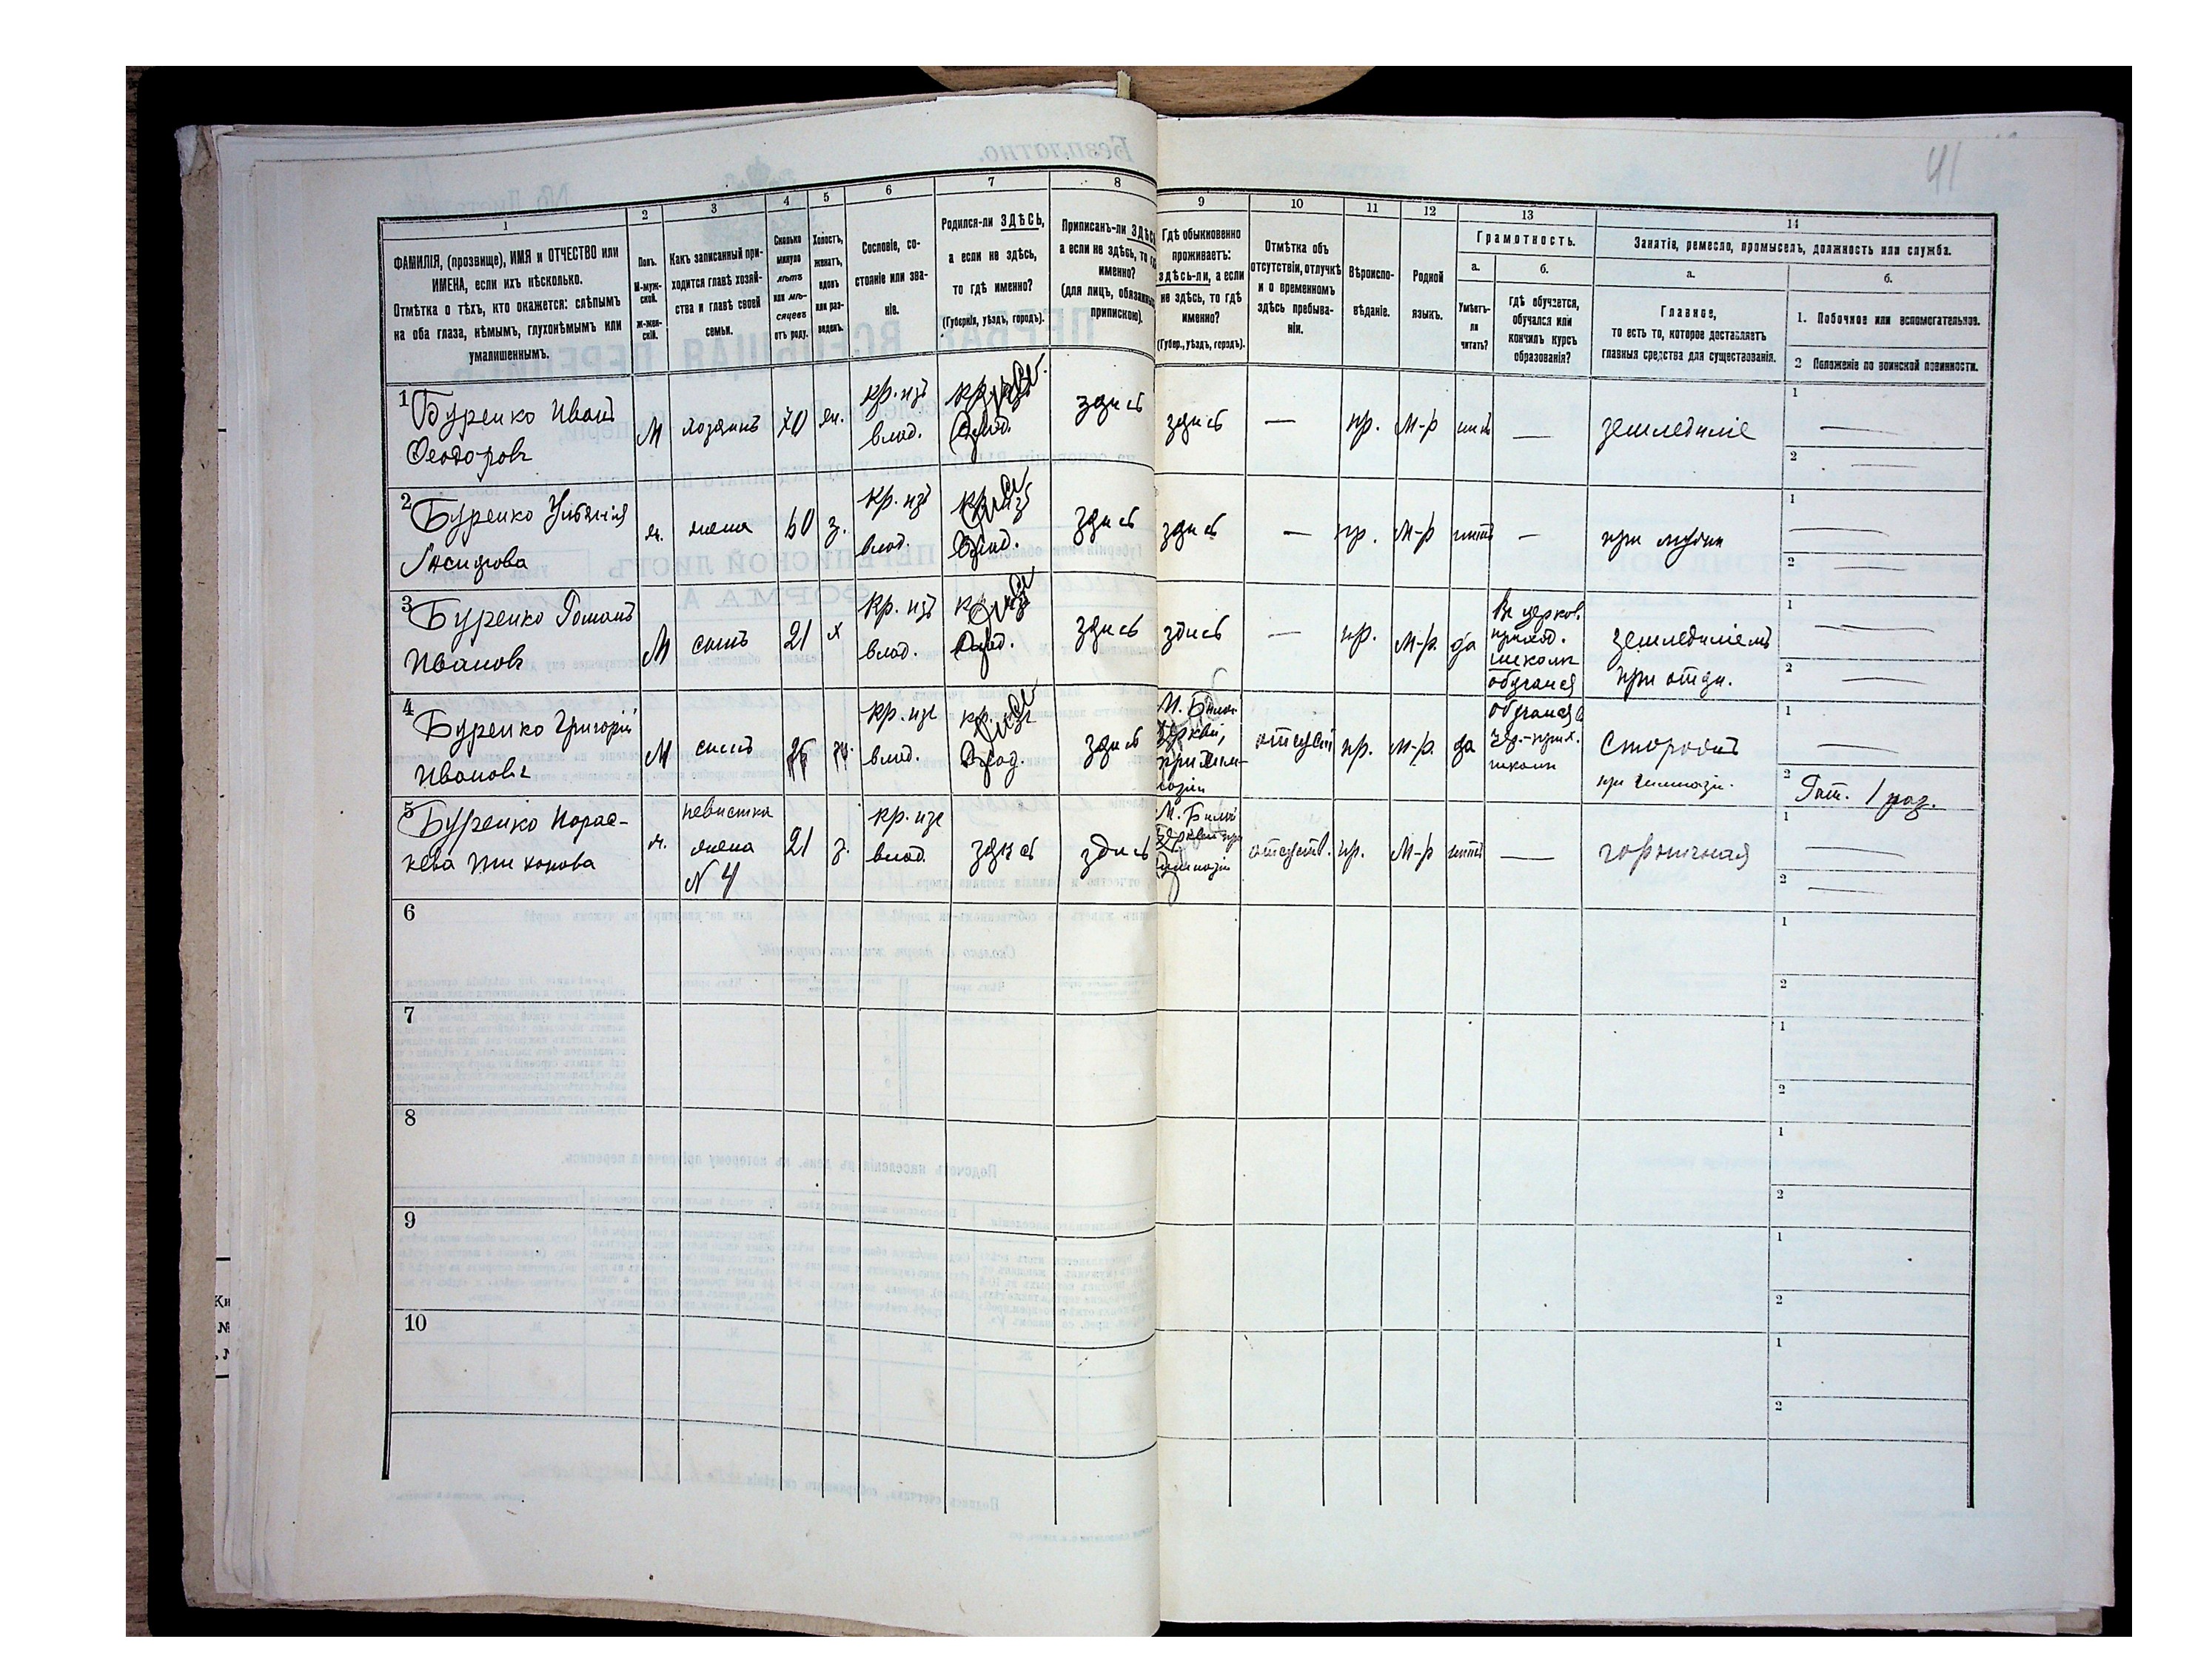 41
1
2
3
4
5
6
7
8
9
10
11
12
13
14
ФАМИЛІЯ, (прозвище), ИМЯ и ОТЧЕСТВО или
ИМЕНА, если ихъ нѣсколько.
Отмѣтка о тѣхъ, кто окажется: слѣпымъ
на оба глаза, нѣмымъ, глухонѣмымъ или
умалишеннымъ.
Полъ.
М-муж-
ской.
Ж-жен-
скій.
Какъ записанный при-
ходится главѣ хозяй-
ства и главѣ своей
семьи.
Сколько
минуло
лѣтъ
или мѣ-
сяцевъ
отъ роду.
Холостъ,
женатъ,
вдовъ
или раз-
веденъ.
Сословіе, со-
стояніе или зва-
ніе.
Родился-ли ЗДѢСЬ,
а если не здѣсь,
то гдѣ именно?
(Губернія, уѣздъ, городъ).
Приписанъ-ли ЗДѢСЬ
а если не здѣсь, то гдѣ
именно?
(для лицъ, обязанныхъ
припискою).
Гдѣ обыкновенно
проживаетъ:
здѣсь-ли, а если
не здѣсь, то гдѣ
именно?
(Губер., уѣздъ, городъ).
Отмѣтка объ
отсутствіи, отлучкѣ
и о временномъ
здѣсь пребыва-
ніи.
Вѣроиспо-
вѣданіе.
Родной
языкъ.
Грамотность.
а.
Умѣетъ-
ли
читать?
б.
гдѣ обучается,
обучался или
кончилъ курсъ
образованія?
Занятіе, ремесло, промыселъ, должность или служба.
а.
Главное,
то есть то, которое доставляетъ
главныя средства для существованія.
б.
1. Побочное или вспомогательное.
2 Положеніе по воинской повинности.
1 Буренко Иванъ
Феодоровъ
М
хозяинъ
70
жн.
кр. изъ
влад.
здись
здись
—
пр.
М-р
нитъ
—
земледиліе
1 —
2 —
2 Буренко Ульянія
Іосифова
ж.
жена
60
з.
кр. изъ
влад.
здись
здись
—
пр.
М-р
нитъ
—
при мужи
1 —
2 —
3 Буренко Романъ
Ивановъ
М
сынъ
21
х
кр. изъ
влад.
здись
здись
—
пр.
М-р.
да
Въ церков.
приход.
школи
обучался
земледиліемъ
при отци.
1 —
2 —
4 Буренко Григорій
Ивановъ
М
сынъ
кр. изъ
влад.
здись
М. Билой
Церкви,
при гим-
назіи
отсутст
пр.
М-р.
да
обучался в
цер.-прих.
школи
Сторожъ
при гимназіи.
1 —
2 Рат. 1 раз.
5 Буренко Парас-
кева Тихонова
ж.
невистка
жена
№ 4
21
з.
кр. изъ
влад.
здись
здись
М. Билой
Церкви при
гимназіи
отсутств.
пр.
М-р
нитъ
—
горничная
1 —
2 —
6
1
2
7
1
2
8
1
2
9
1
2
10
1
2